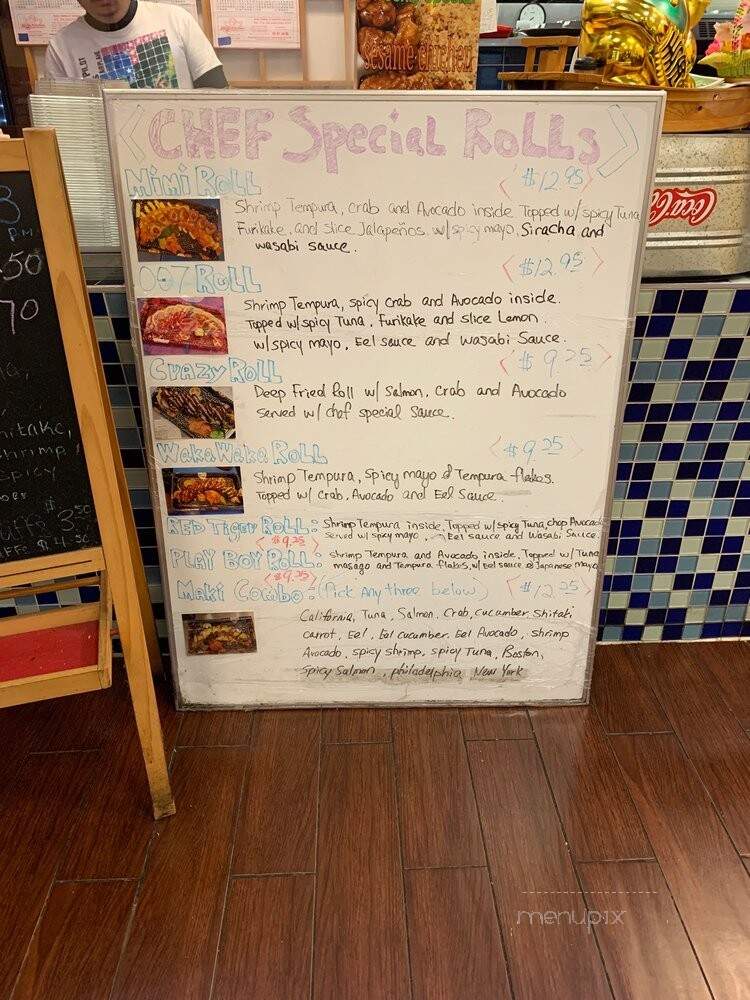 sesame chicken
CHEF Special Rolls
Mimi Roll $12.95
Shrimp Tempura, crab and Avocado inside Topped w/spicy Tuna
Furikake, and slice Jalapeños. w/spicy mayo, Siracha and
wasabi sauce.
007 Roll $12.95
Shrimp Tempura, spicy crab and Avocado inside.
Topped w/spicy Tuna, Furikake and slice Lemon.
w/spicy mayo, Eel sauce and wasabi Sauce.
Crazy Roll $9.25
Deep Fried Roll w/ Salmon, Crab and Avocado
served w/ chef special Sauce.
Waka Waka Roll $9.25
Shrimp Tempura, Spicy mayo & Tempura flakes.
Topped w/ Crab, Avocado and Eel Sauce.
RED Tiger Roll: Shrimp Tempura inside, Topped w/spicy Tuna, chop Avocado
$9.25 served w/ spicy mayo, Eel sauce and Wasabi Sauce.
PLAY BOY Roll: shrimp Tempura and Avocado inside, Topped w/Tuna
$9.25 masago and Tempura flakes, w/ Eel sauce & Japanese mayo
Maki Combo: (Pick Any three below) $12.25
California, Tuna, Salmon, Crab, cucumber Shitaki
carrot, Eel, Eel cucumber, Eel Avocado, shrimp
Avocado, spicy shrimp, spicy Tuna, Boston,
Spicy Salmon, philadelphia, New York
Coca-Cola
3
PM
.50
70
hitake,
shrimp,
spicy
3.50
$4.50
menupix